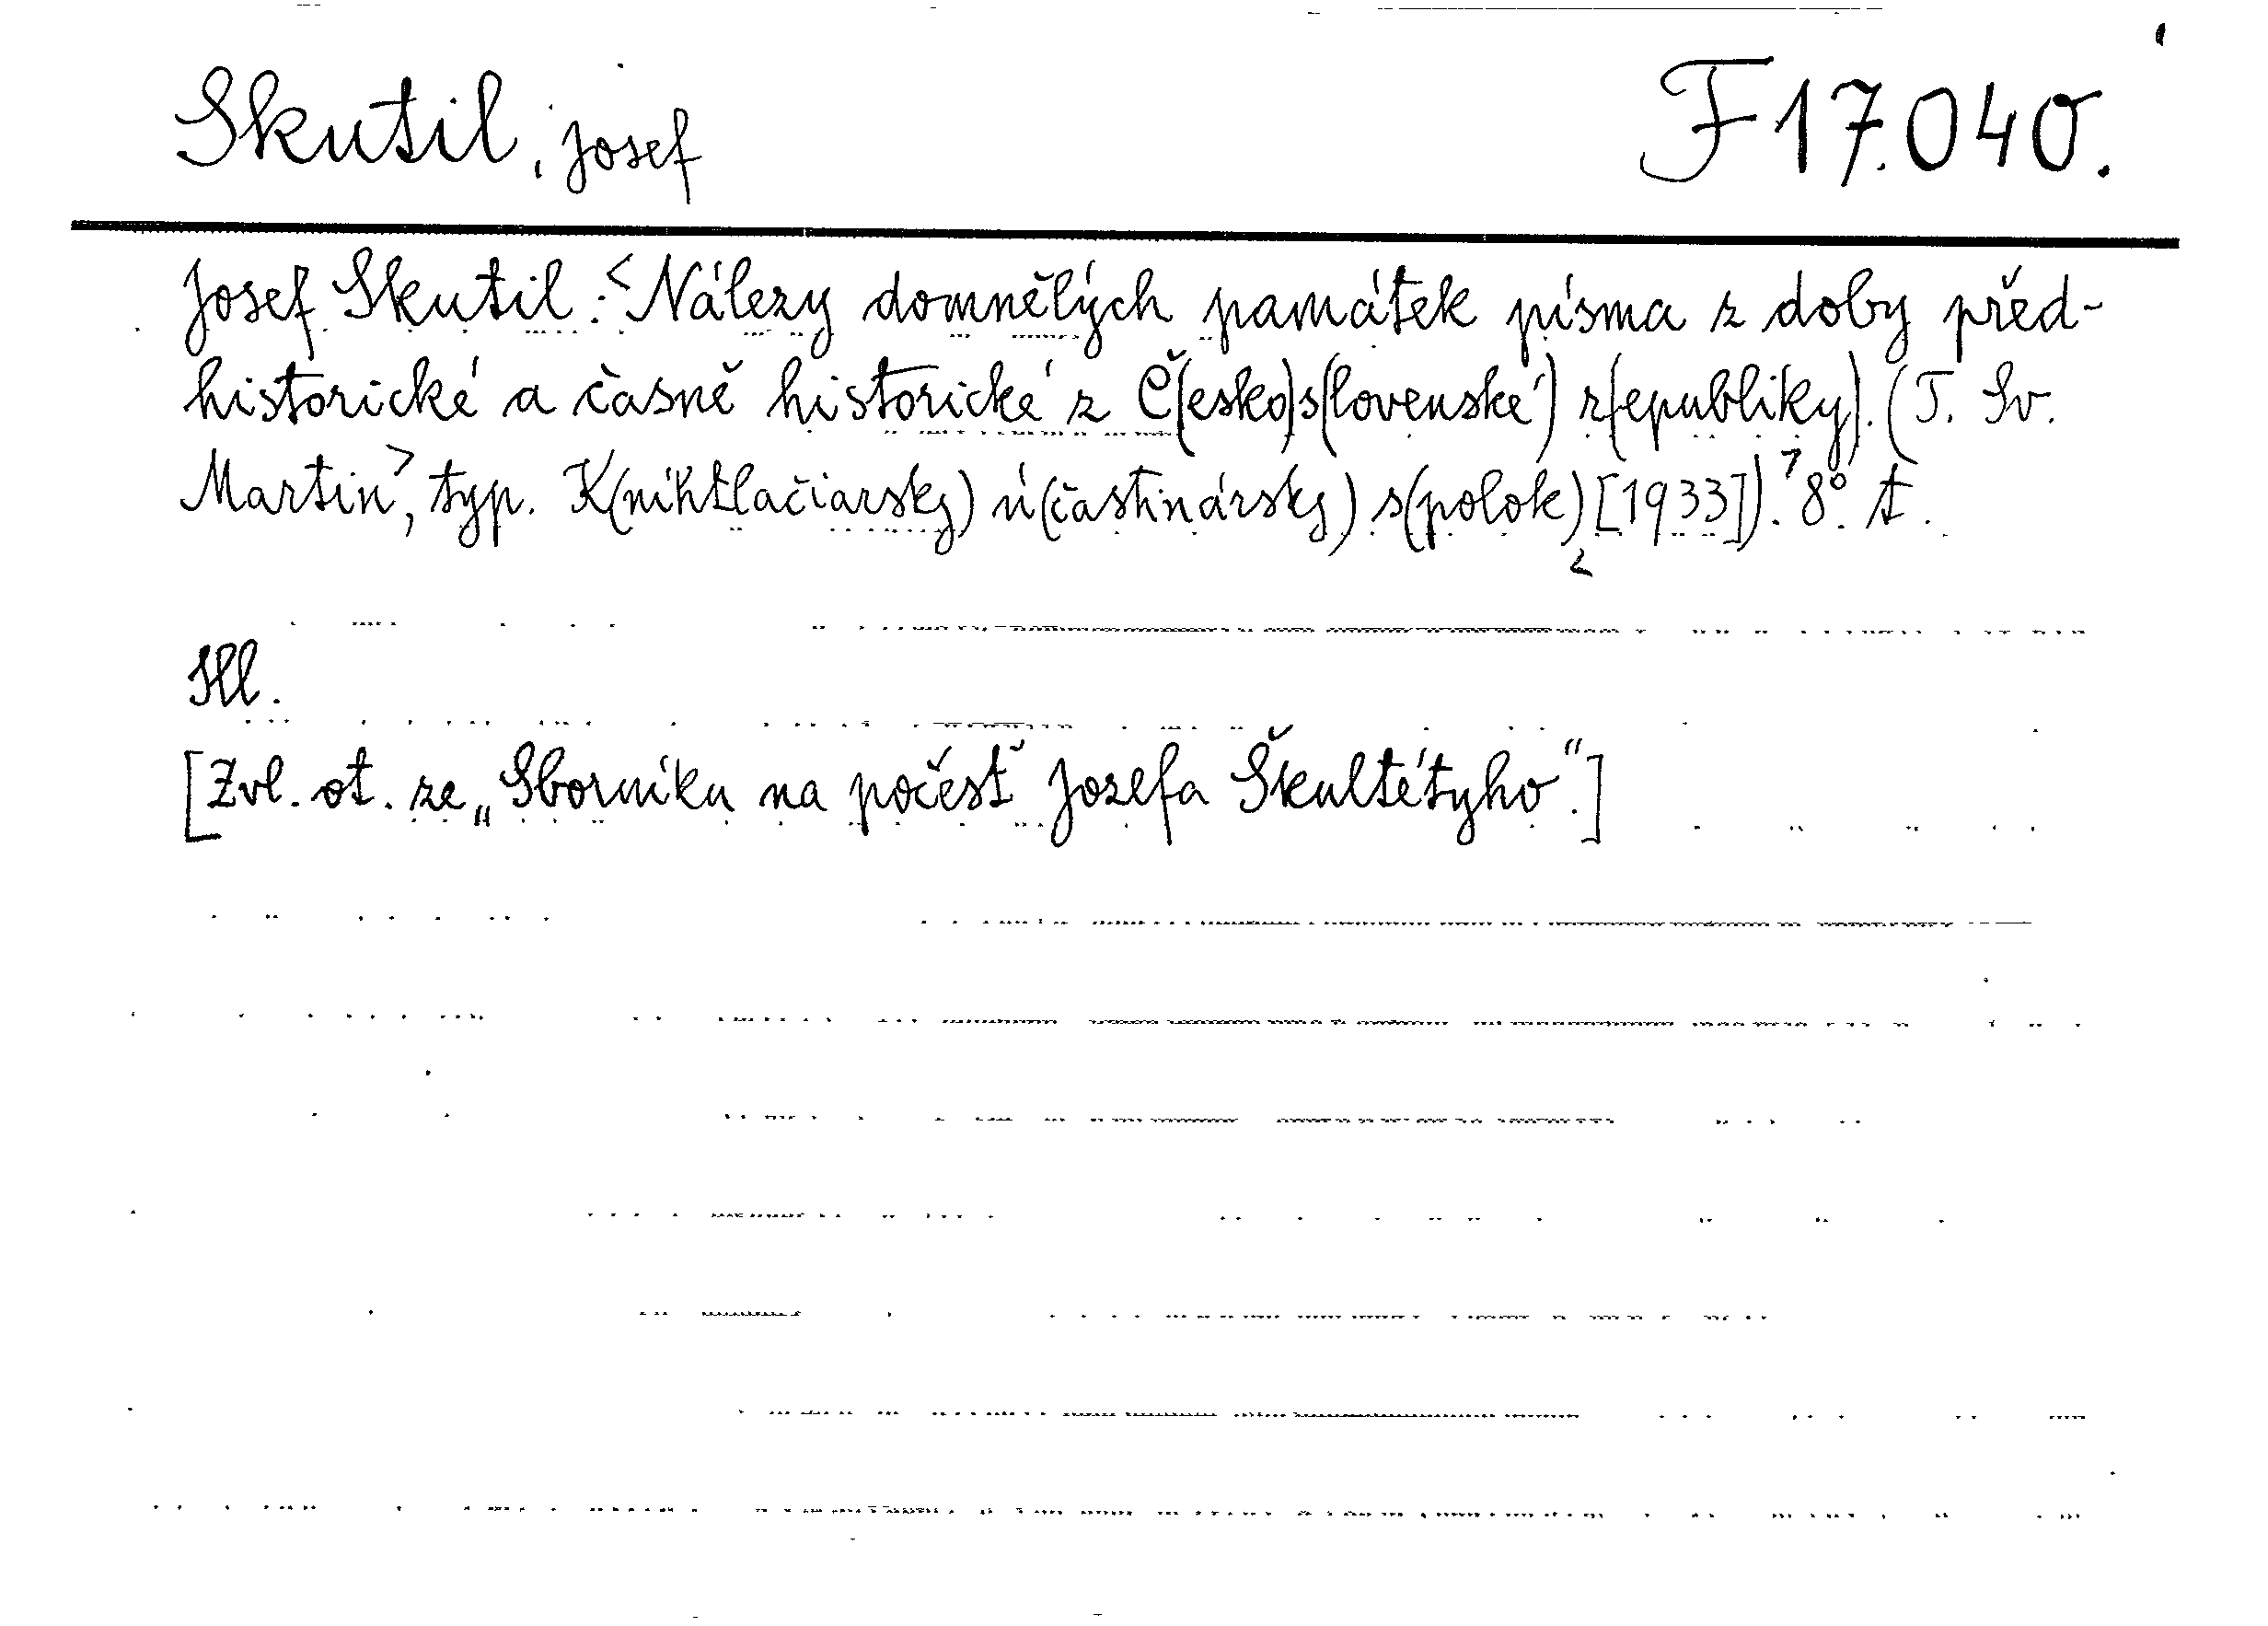 Skutil, Josef F 17.040.
Josef Skutil: <Nálezy domnělých památek písma z doby před-
historické a časně historické z Č(esko)s(lovenské) r(epubliky). (T. Sv.
Martin>, typ. K(níhtlačiarsky) ú(častinársky) s(polok) [1933]).> 8°. A.
<
Ill.
[Zvl. ot. ze „Sborníku na počesť Jozefa Škultétyho“.]